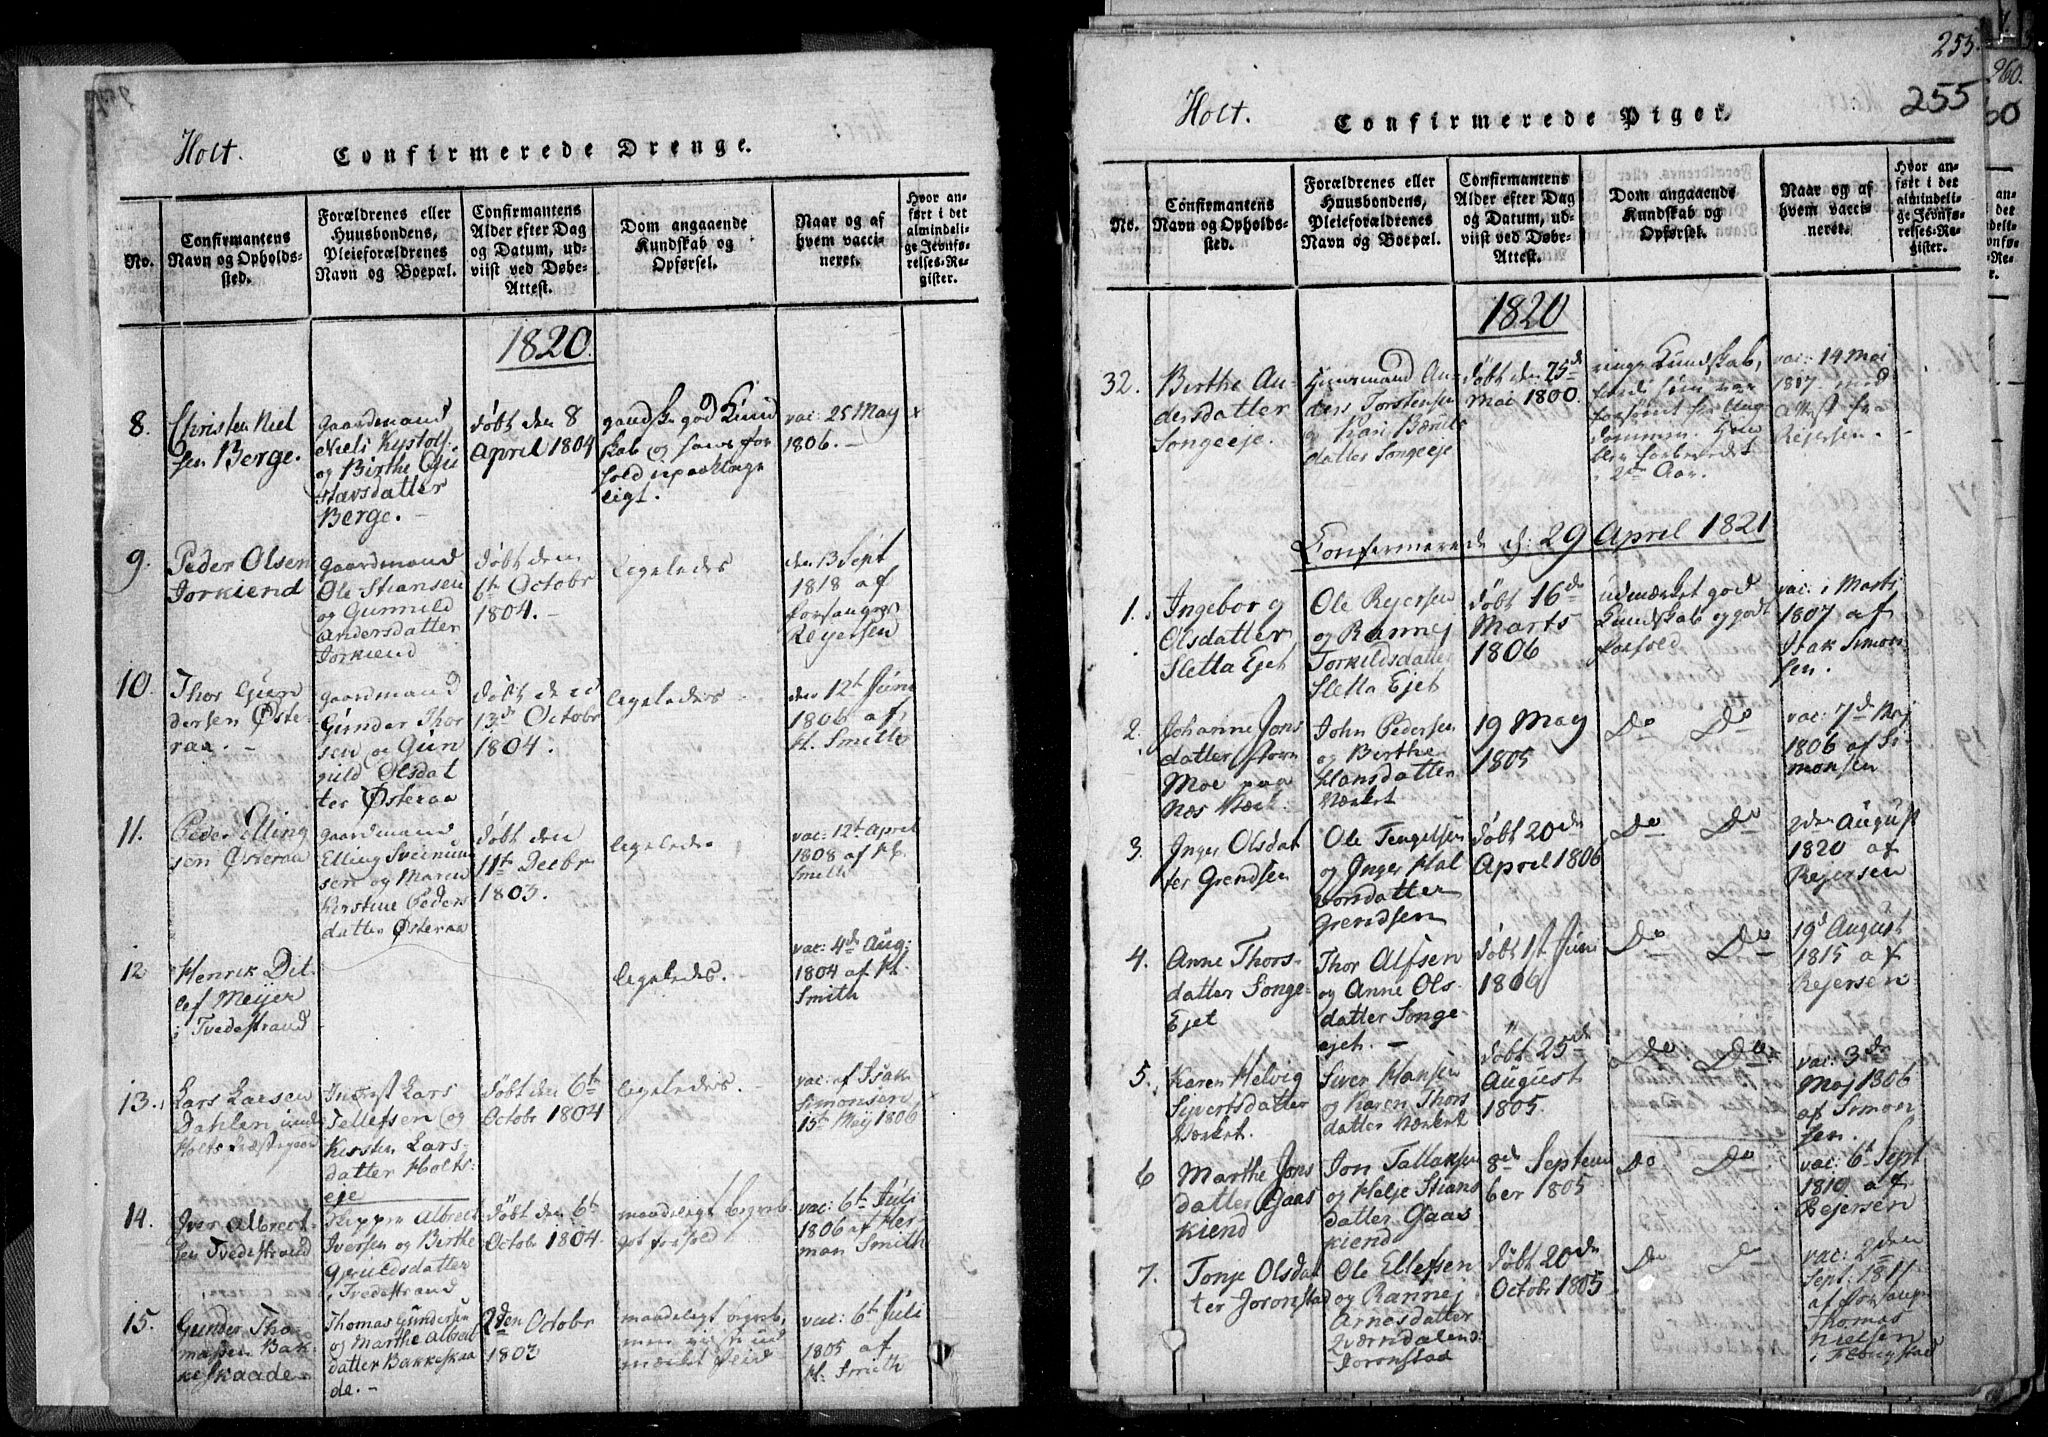 Holt.
Confirmerede Drenge.
No.
Confirmantens
Navn og Opholds-
sted.
Forældrenes eller
Huusbondens,
Pleieforældrenes
Navn og Boepæl.
Confirmantens
Alder efter Dag
og Datum, ud-
viist ved Døbe-
Attest.
Dom angaaende
Kundskab og
Opførsel.
Naar og af
hvem vacci-
neret.
Hvor an-
ført i det
almindeli-
ge Jevnfø-
relses-Re-
gister.
1820.
8.
Christen Niel
sen Berge.
Gaardmand
Niels
og Birthe Gu
stavsdatter
Berge. -
døbt den 8
April 1804
gandske god Kund
skab og hans for
hold
ligt.
vac: 25 May
1806. -
9.
Peder Olsen
Torkiend
Gaardmand
Ole Stiansen
og Gunnild
Andersdatter
Torkiend
døbt den
6te Octobr
1804. -
Ligeledes
den 13 Sept
1818 af
Forsanger
Reyersen
10.
Thor Gun
dersen Øste-
raa. -
Gaardmand
Gunder Thor
sen og Gun
uld Olsdat
ter Østeraa
døbt den
13de Octobr
1804.
ligeledes -
den 12te Juni
1806 af
H. Smith
11.
Peder Elling
sen Østeraa
Gaardmand
Elling Sveinun
sen og Maren
Kirstine Peders
datter Østeraa
døbt den
11te Decbr
1803.
ligeledes
vac: 12te April
1808 af H.
Smith
12
Henrik Dit-
lef Meijer
i Tvedestrand
ligeledes.
vac: 4de Aug:
1804 af H.
Smith
13.
Lars Larsen
Dahlen
Holts Præstegaard
Lars
Tellefsen og
Kirsten Lars-
datter Holts-
eje
døbt den 6te
Octobr 1804
ligeledes. -
vac: af Isak
Simonsen
15de Mey 1806
14.
Iver Albert-
sen Tvedestrand
Skipper Albert
Iversen og Birthe
Gjeruldsdatter
i Tvedestrand
døbt den 6te
Octobr 1804.
maadeligt begreb.
got forhold
vac: 6te Juli
1806 af Her-
man Smith
15.
Gunder Tho
massen Bak-
keskaade -
Thomas Gundersen
og Marthe Albert
datter Bakkeskaa
de. -
2den Octobr
1803
maadeligt begreb,
men viist ud
mærket Flid
vac: 6te Juli
1805 af
H. Smith
255.
255
Holt.
Confirmerede Piger.
No.
Confirmantens
Navn og Opholds-
sted.
Forældrenes eller
Huusbondens,
Pleieforældrenes
Navn og Boepæl.
Confirmantens
Alder efter Dag
og Datum, ud-
viist ved Døbe-
Attest.
Dom angaaende
Kundskab og
Opførsel.
Naar og af
hvem vacci-
neret.
Hvor an-
ført i det
almindeli-
ge Jevnfø-
relses-Re-
gister.
1820
32.
Birthe An-
dersdatter
Songeeje.
Huusmand An-
ders Torstensen
og Kari
datter Songeeje
døbt den 25de
Mai 1800.
ringe Kundskab,
Ung-
dommen.
blev forberedet
i 2de Aar.
vac: 14 Mai
1817 med
Attest fra
Rejersen.
Confirmerede d: 29 April 1821
1.
Ingeborg
Olsdatter
Sletta Ejet
Ole Rejersen
og Rannej
Torkildsdatter
Sletta Ejet
døbt 16de
Marts
1806
udmærket god
Kundskab og godt
forhold
vac: i Marts
1807 af
Isak Simon
sen.
2.
Johanne Jons
datter
Moe paa
Nes Værk.
John Pedersen
og Birthe
Hansdatter
Værket
19 May
1805
Do Do
vac: 7de Maj
1806 af Si-
monsen
3.
Inger Olsdat
ter Grendsen
Ole Tengelsen
og Inger Hal
vorsdatter
Grendsen
døbt 20de
April 1806
Do Do
2den August
1820 af
Rejersen
4.
Anne Thors-
datter Songe-
Ejet
Thor Alfsen
og Anne Ols-
datter Songe-
ejet. -
døbt 1st Juni
1806
Do Do
19d August
1815 af
Rejersen
5.
Karen Helvig
Sivertsdatter
Værket.
Siver Hansen
og Karen Thors
datter Værket
døbt 25de
August
1805.
Do Do
vac: 3de
Maj 1806
af Simon
sen.
6
Marthe Jons
datter Gaas
kiend
Jon Tallaksen
og Helje Stians
datter Gaas
kiend
8de Septem
ber 1805
Do Do
vac: 6te Sept
1810 af
Rejersen
7.
Tonje Olsdat
ter Joronstad
Ole Ellefsen
og Rannej
Arnesdatter
Joronstad
døbt 20de
Octobr 1805
Do Do
vac: 2den
Sept: 1811
af Forsanger
Thomas
Nielsen
960.